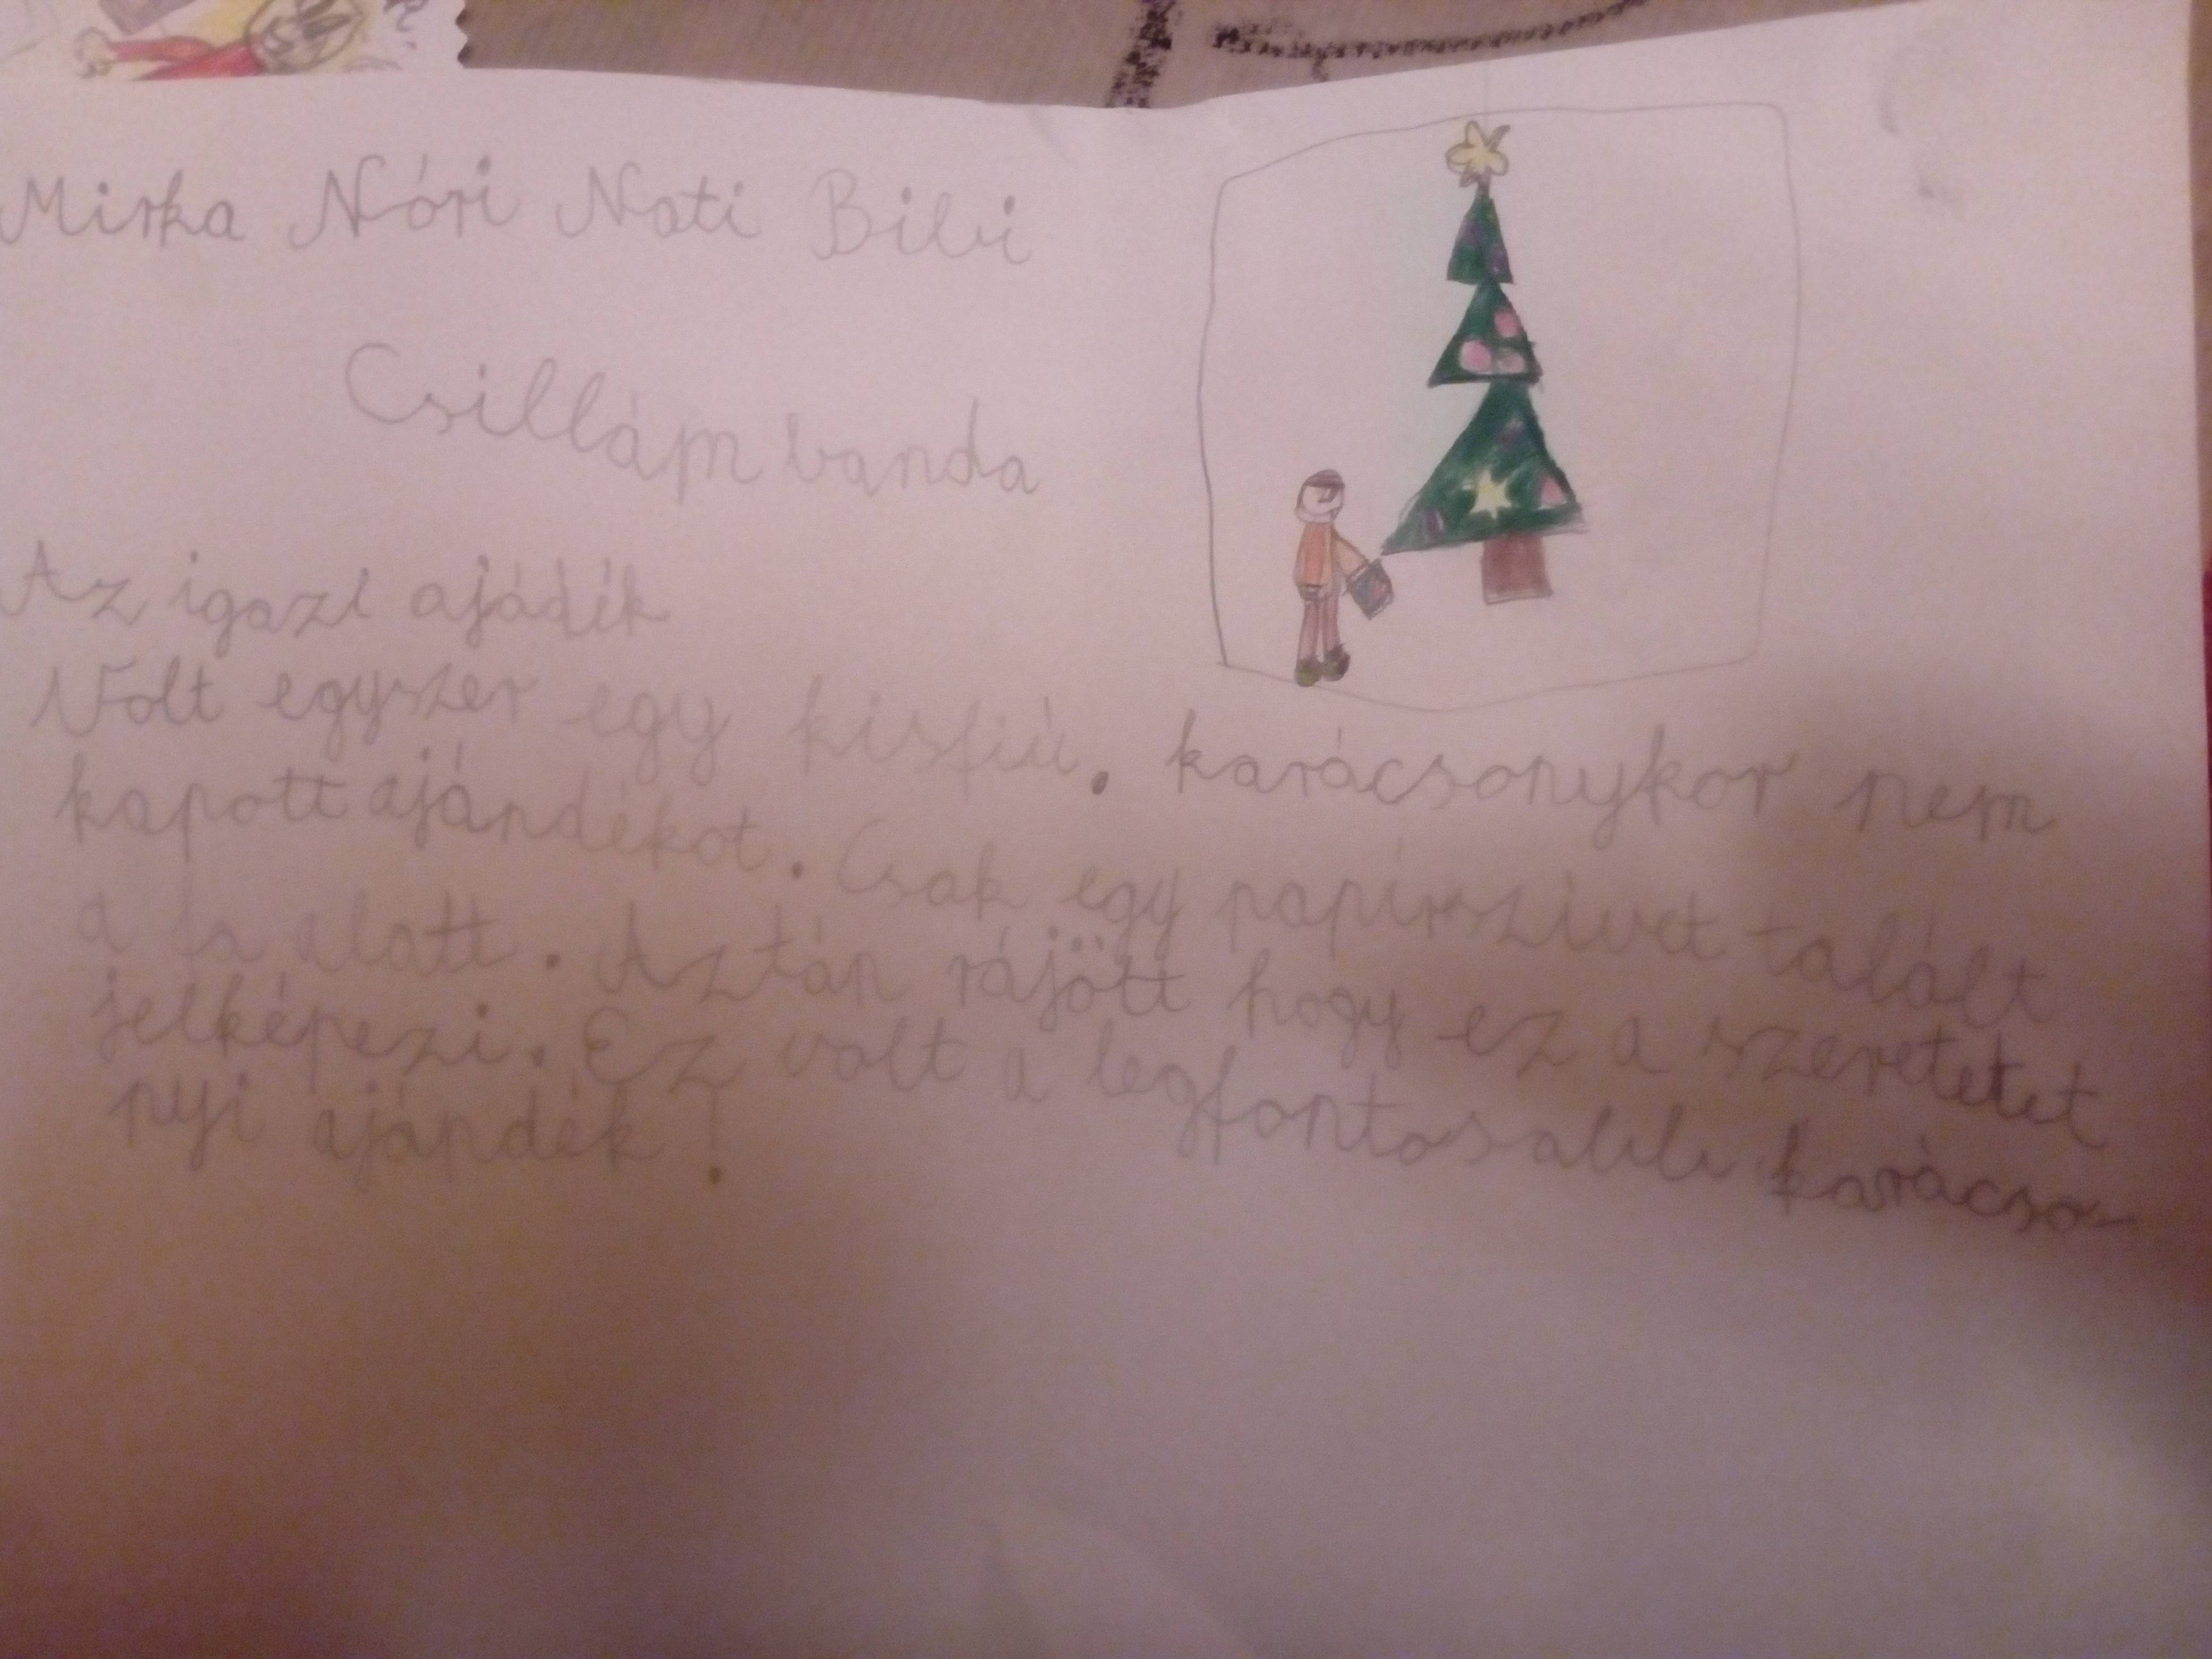 Mirka Nóri Nati Bibi
Csillám banda
Az igazi ajádék
Volt egyszer egy kisfiú. karácsonykor nem
kapott ajándékot. Csak egy papírszivet talált
a fa alatt. Aztán rájött hogy ez a szeretetet
jelképezi. Ez volt a legfontosabb karácso-
nyi ajándék!